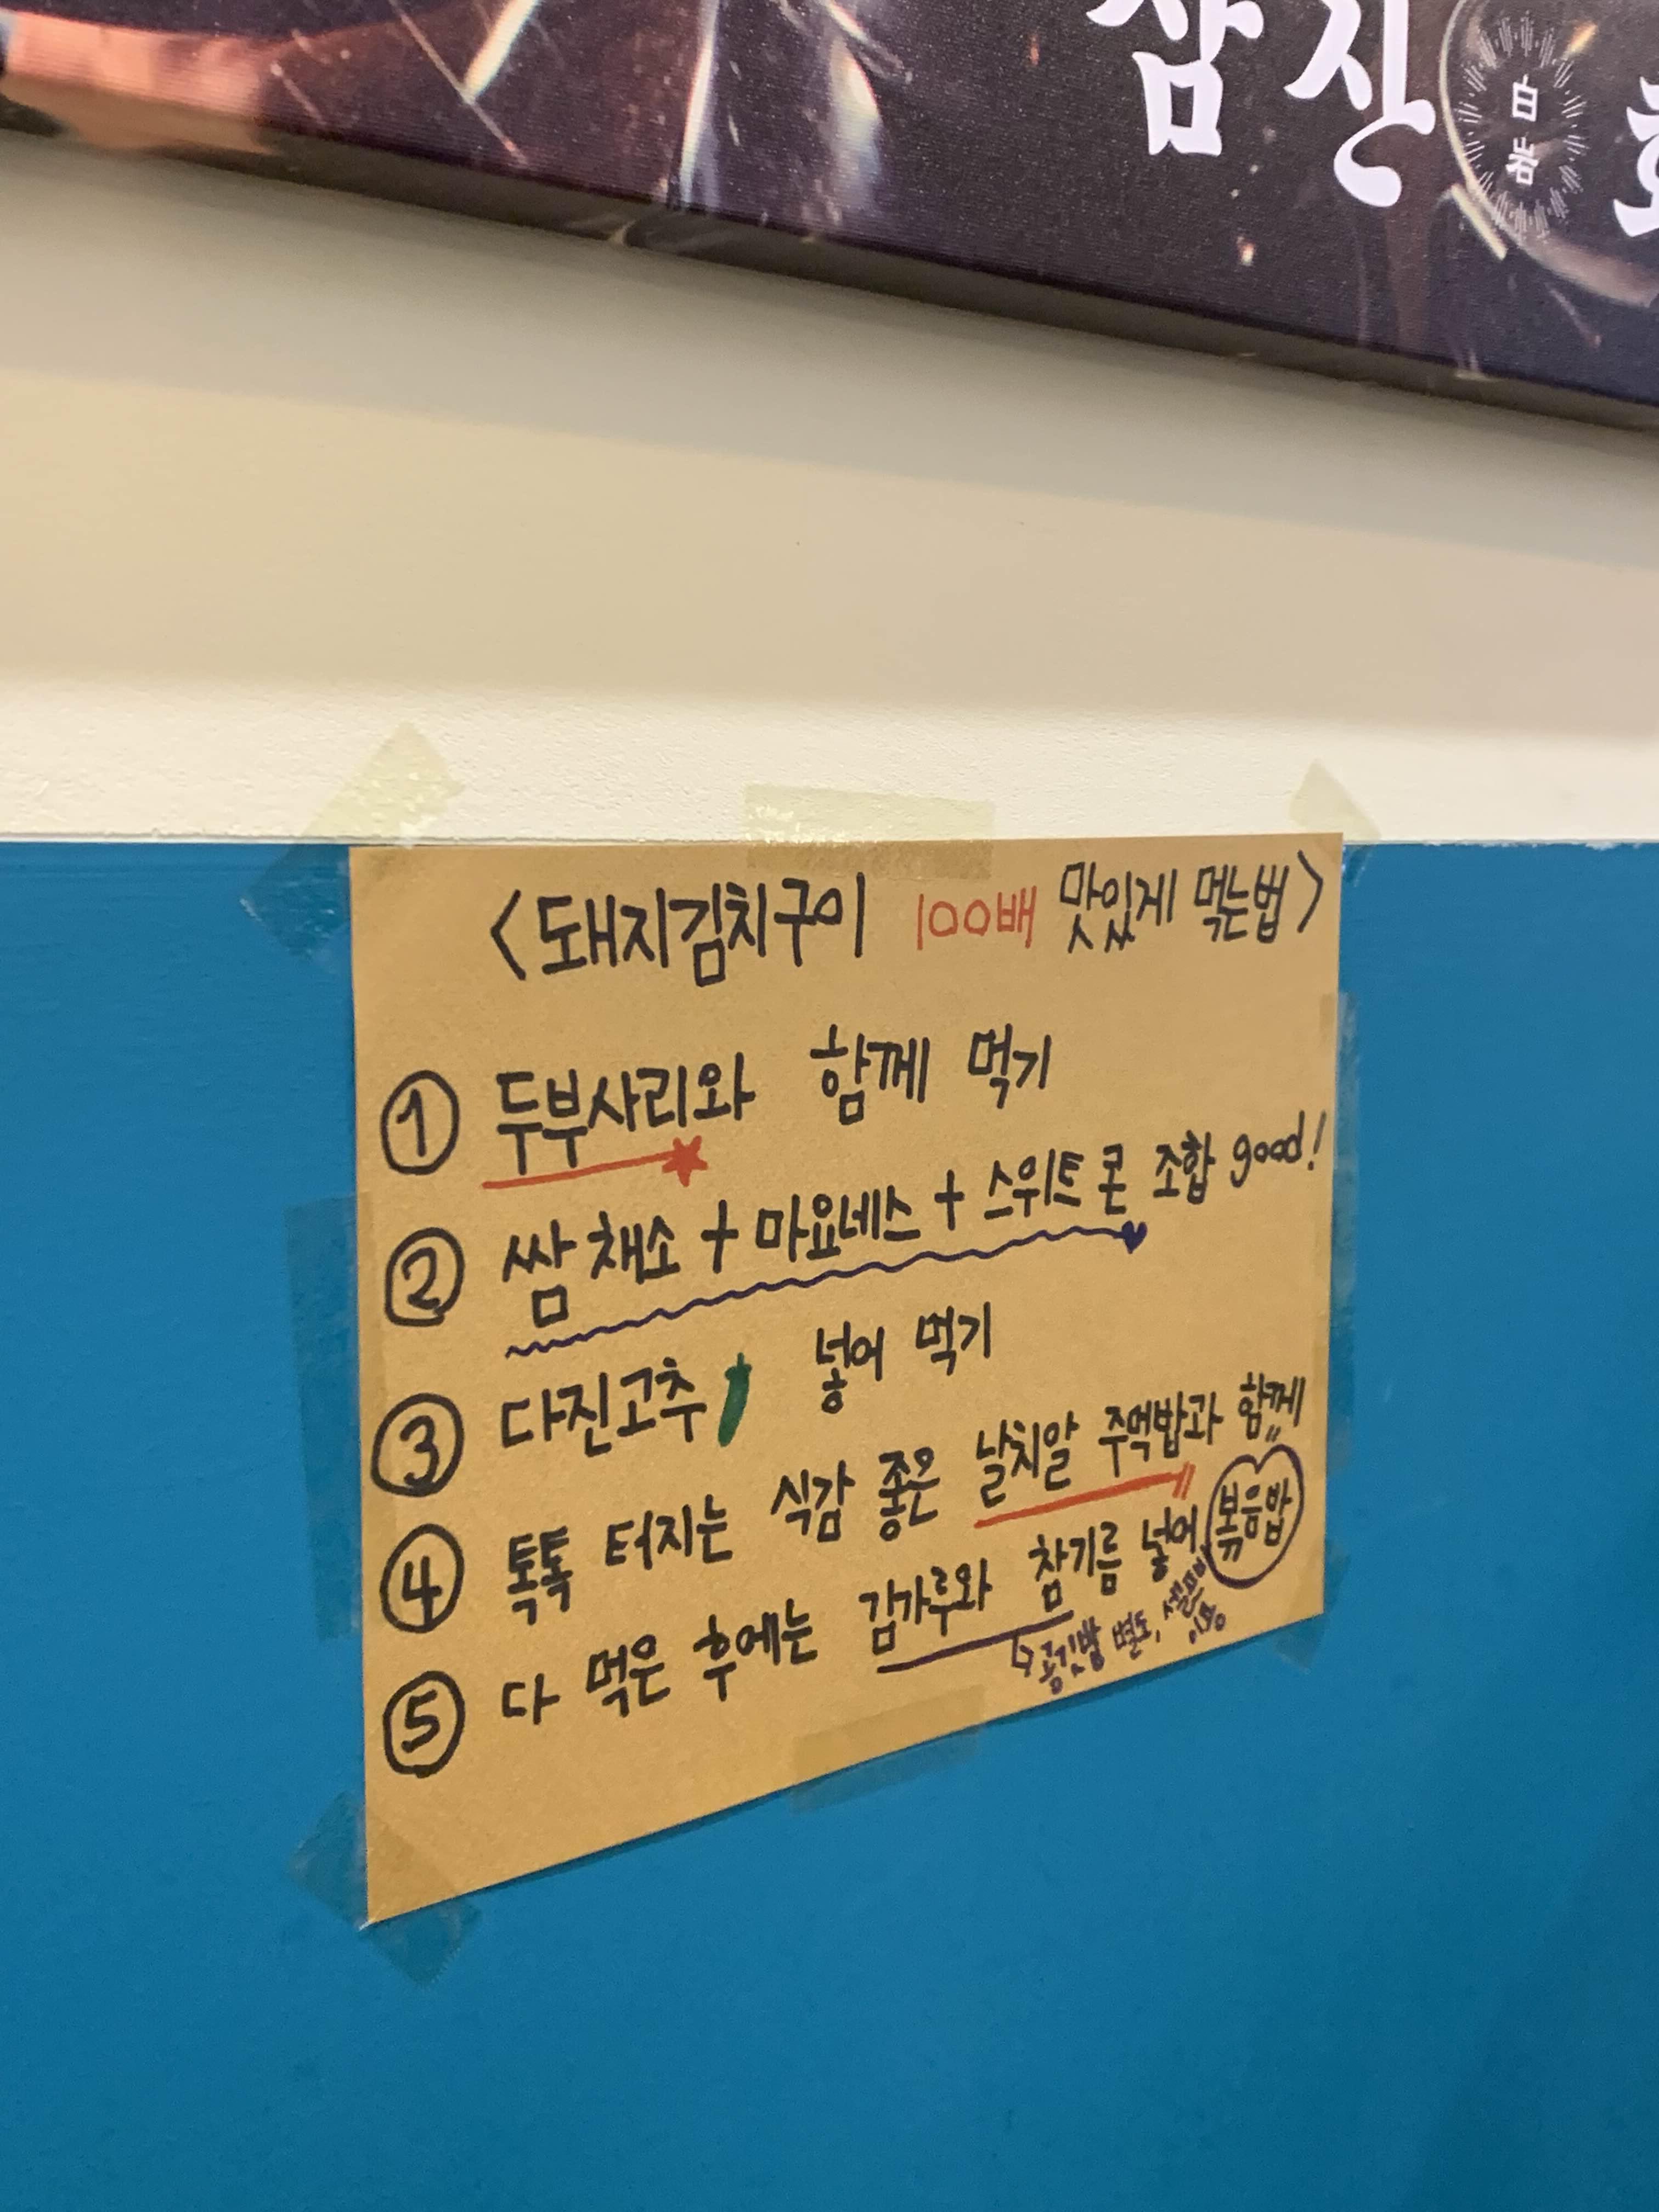 삼진
白岩
<돼지김치구이 100배 맛있게 먹는법>
① 두부사리와 함께 먹기
② 쌈채소 + 마요네스 + 스위트콘 조합 good!
③ 다진고추 넣어 먹기
④ 톡톡 터지는 식감 좋은 날치알 주먹밥과 함께
⑤ 다 먹은 후에는 김가루와 참기름 넣어 볶음밥
공깃밥 별도, 셀프바 이용